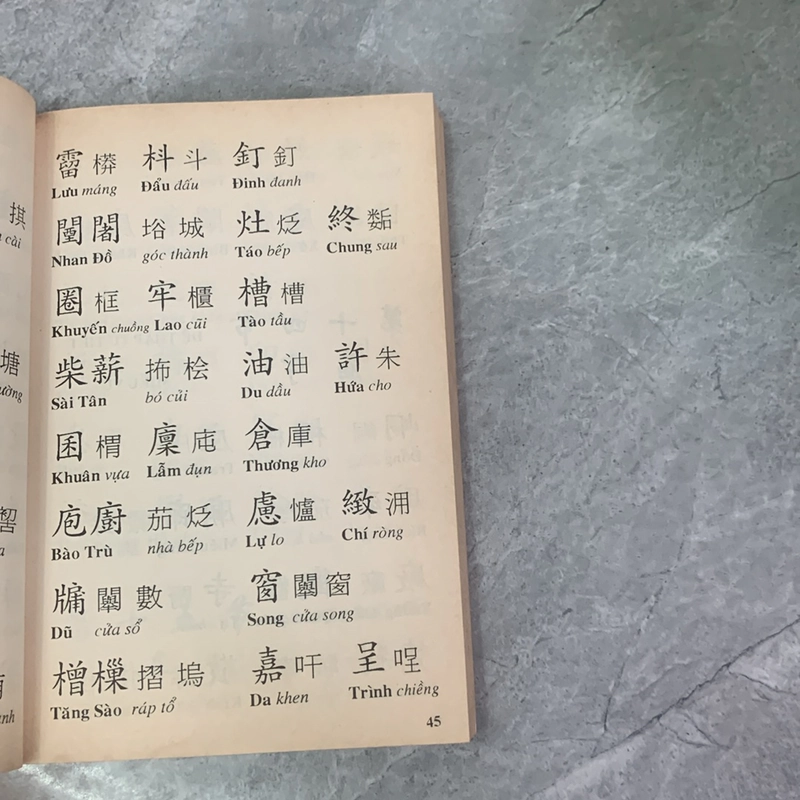 霤 樠 枓 斗 釘 釘
Lưu máng Đẩu đấu Đinh đanh
闉闍 㙮 城 灶 炦 終
Nhan Đồ góc thành Táo bếp Chung sau
圈 框 牢 櫃 槽 槽
Khuyến chuồng Lao cũi Tào tầu
柴薪 抪 桧 油 油 許 朱
Sài Tân bó củi Du dầu Hứa cho
囷 楣 廩 庉 倉 庫
Khuân vựa Lẫm đụn Thương kho
庖廚 茄 炦 慮 爐 緻 𣳔
Bào Trù nhà bếp Lự lo Chí ròng
牖 闗 數 窗 闗 窗
Dũ cửa sổ Song cửa song
橧樔 摺 塢 嘉 㕨 呈 𠴔
Tăng Sào ráp tổ Da khen Trình chiềng
45
搷
cài
塘
ường
a
anh